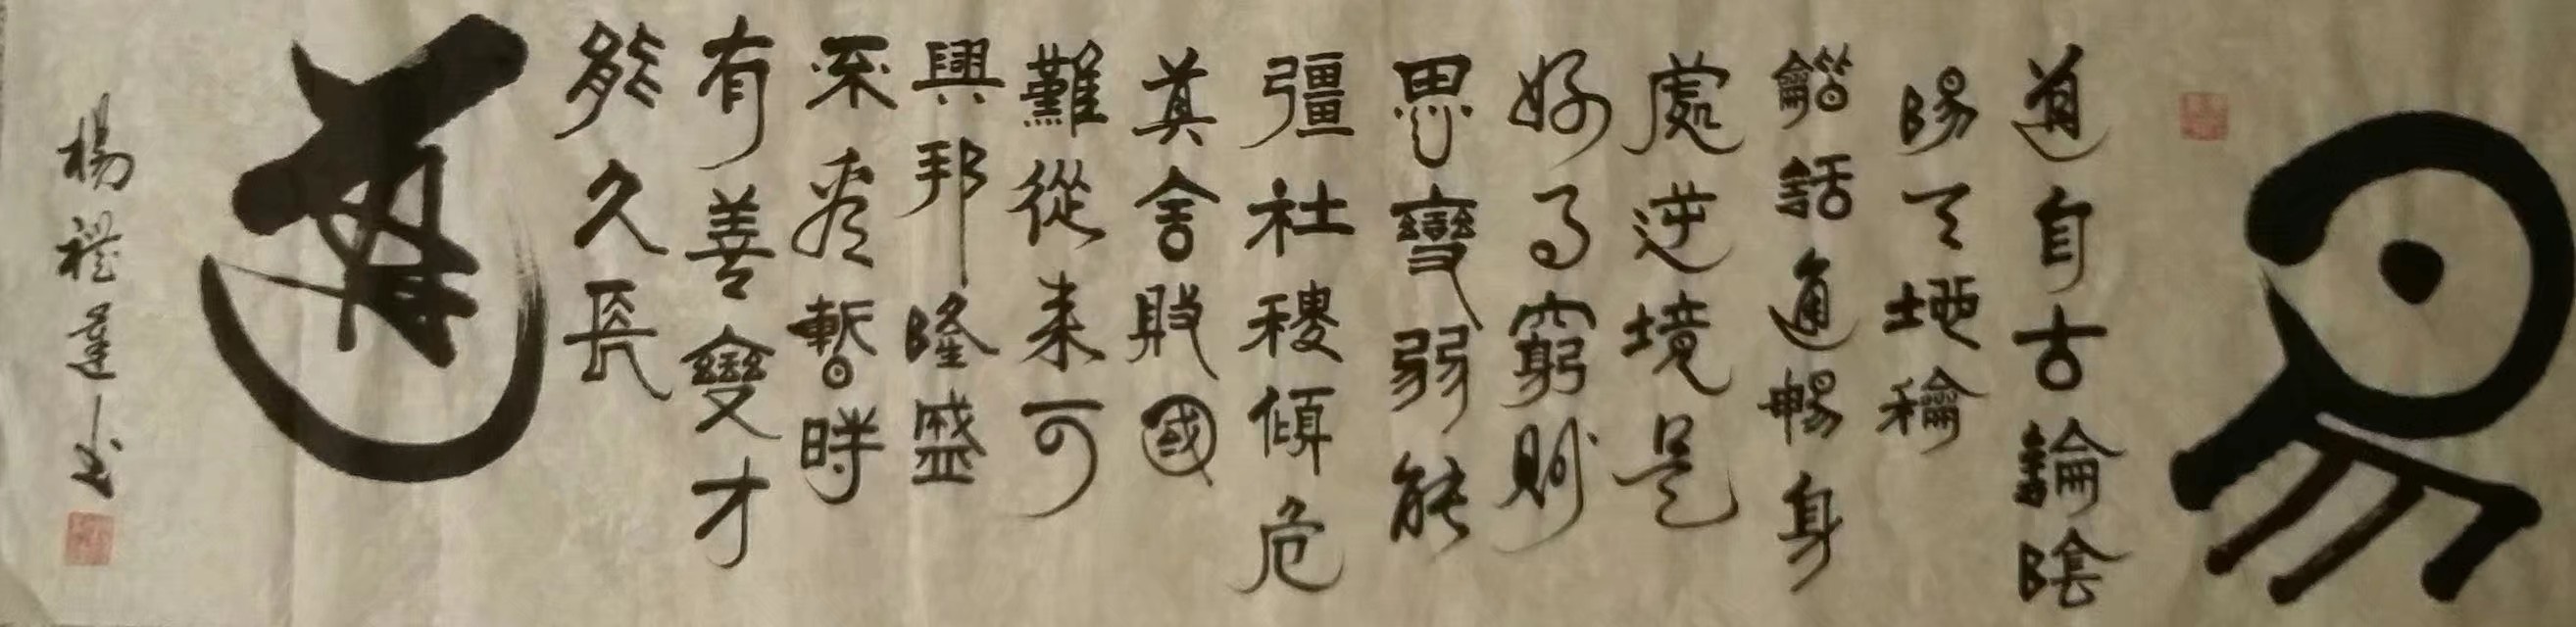 易
道自古論陰
陽天地稐
話通暢身
處逆境是
好事窮則
思變弱能
彊社稷傾危
莫舍敗國
難從來可
興邦隆盛
暫時
有善變才
能久長
道
楊